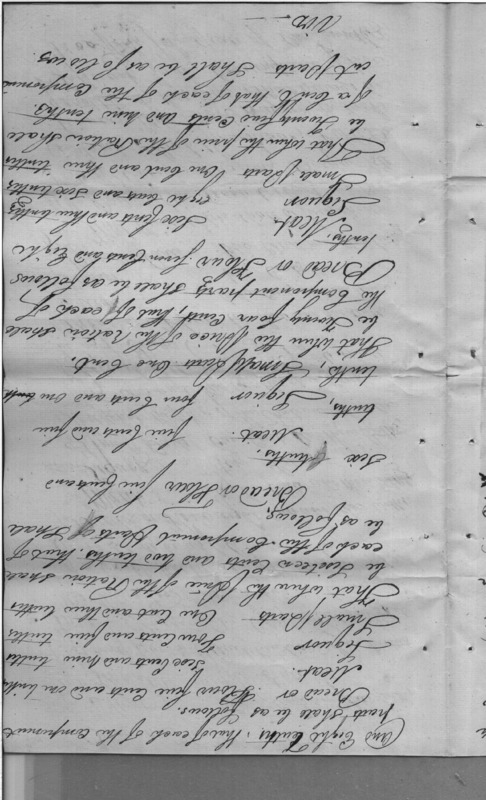 And Eight Tenths, that of each of the Component
parts shall be as follows.
Bread or Flour five Cents and one tenth
Meat. Six Cents and nine tenths
Liquor Four Cents and five tenths
Small parts One Cent and three tenths
That when the price of the Ration shall
be Sixteen Cents and two tenths, that of
each of the Component parts of Shall
be as follows,
Bread or Flour five Cents and
Six tenths.
Meat. five Cents and five
tenths,
Liquor four Cents and one tenth
tenths, Small parts One Cent.
That when the price of the Ration shall
be Twenty four Cents, that of each of
the Component parts shall be as follows
Bread or Flour Seven Cents and Eight
tenths.
Meat. Six Cents and three tenths
Liquor eight Cents and six tenths
Small parts One Cent and three tenths
That when the price of the Ration shall
be Twenty five Cents and nine tenths
of a Cent that of each of the Component
parts shall be as follows.
Viz